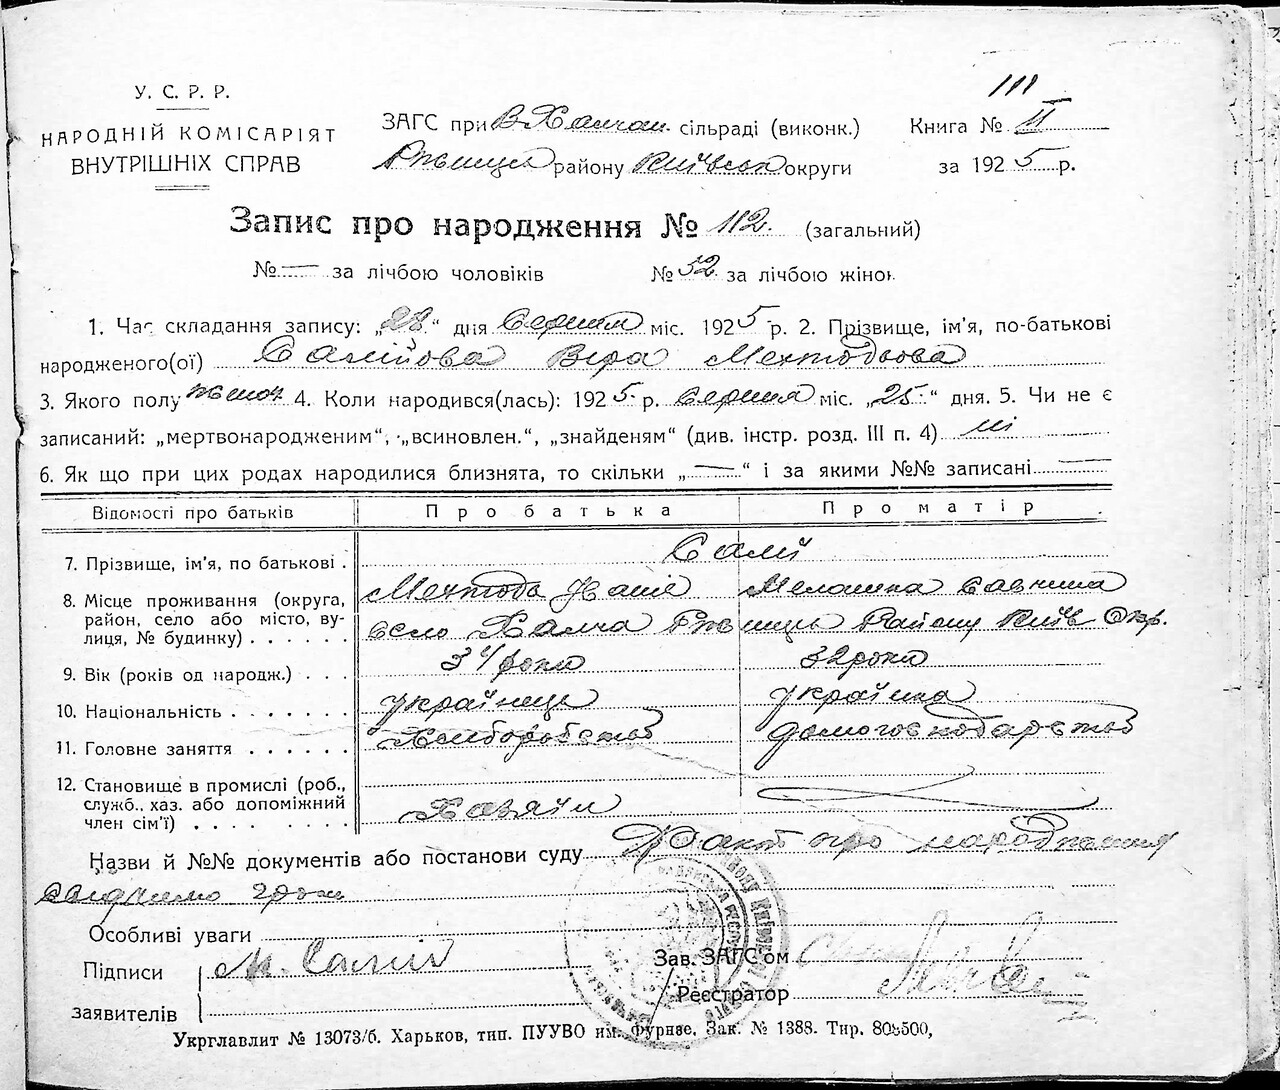 111
У. С. Р. Р.
НАРОДНІЙ КОМІСАРІЯТ
ВНУТРІШНІХ СПРАВ
ЗАГС при В Халчан. сільраді (виконк.)
Ржищев району Київськ округи
Книга № II
за 1925 р.
Запис про народження № 112. (загальний)
№ — за лічбою чоловіків № 52 за лічбою жінок
1. Час складання запису: „28“ дня Серпня міс. 1925 р. 2. Прізвище, ім'я, по-батькові
народженого(ої) Саліїова Віра Мехтодьова
3. Якого полу жіноч. 4. Коли народився(лась): 1925 р. Серпня міс. „25“ дня. 5. Чи не є
записаний: „мертвонародженим“, „всиновлен.“, „знайденям“ (див. інстр. розд. III п. 4) ні
6. Як що при цих родах народилися близнята, то скільки „—“ і за якими №№ записані —
Відомості про батьків Про батька Про матір
7. Прізвище, ім'я, по батькові . Салій
Мехтодь Меланика
8. Місце проживання (округа, район, село або місто, вулиця, № будинку) . . . . . . село Халча Ржищь Району Київ Окр.
9. Вік (років од народж.) . . . 34 роки 32 роки
10. Національність . . . . . . . українець українка
11. Головне заняття . . . . . . Хліборобство домогосподарство
12. Становище в промислі (роб., служб., хаз. або допоміжний член сім'ї) . . . . . . . . Хазяїн
Назви й №№ документів або постанови суду Факт про народження
Особливі уваги
Підписи М. Салій
заявителів
Зав. ЗАГС'ом
Реєстратор
Укрглавлит № 13073/б. Харьков, тип. ПУУВО им. Фрунзе. Зак. № 1388. Тир.